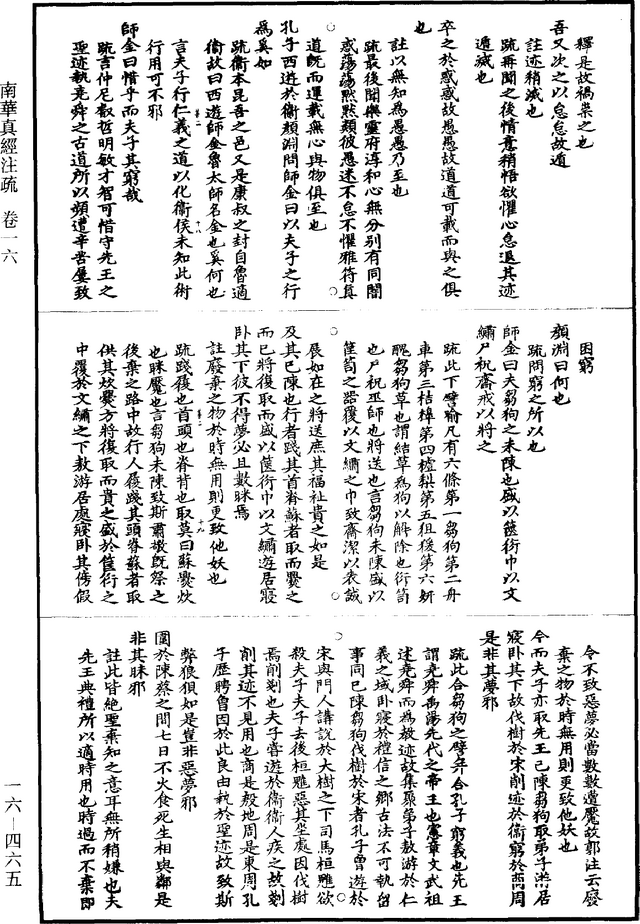 南華真經注疏　卷一六
一六—四六五
釋是故禍祟之也
吾又次之以怠怠故遁
註迹稍滅也
疏再聞之後情意稍悟故懼心怠退其迹
遁滅也
卒之於惑惑故愚愚故道道可載而與之俱
也
註以無知為愚愚乃至也
疏最後聞樂靈府淳和心無分別有同闇
惑蕩蕩默默類彼愚迷不怠不懼雅符真
道既而運載無心與物俱至也
孔子西遊於衛顏淵問師金曰以夫子之行
為奚如
疏衛本昆吾之邑又是康叔之封自魯適
衛故曰西遊師金魯太師名金也奚何也
言夫子行仁義之道以化衛侯未知此術
行用可不邪
師金曰惜乎而夫子其窮哉
疏言仲尼叡哲明敏才智可惜守先王之
聖迹執堯舜之古道所以頻遭辛苦屢致
困窮
顏淵曰何也
疏問窮之所以也
師金曰夫芻狗之未陳也盛以篋衍巾以文
繡尸祝齋戒以將之
疏此下譬喻凡有六條第一芻狗第二舟
車第三桔槔第四樝梨第五猨狙第六妍
醜芻狗草也謂結草為狗以解除也衍笥
也尸祝巫師也將送也言芻狗未陳盛以
篋笥之器覆以文繡之巾致齋潔以表誠
展如在之將送庶其福祉貴之如是
及其已陳也行者踐其首脊蘇者取而爨之
而已將復取而盛以篋衍巾以文繡遊居寢
卧其下彼不得夢必且數眯焉
註廢棄之物於時無用則更致他妖也
疏踐履也首頭也脊背也取草曰蘇爨炊
也眯魘也言芻狗未陳致斯肅敬既祭之
後棄之路中故行人履踐其頭脊蘇者取
供其炊爨方將復取而貴之盛於篋衍之
中覆於文繡之下敖游居處寢卧其傍假
令不致惡夢必當數數遭魘故郭注云廢
棄之物於時無用則更致他妖也
今而夫子亦取先王已陳芻狗取弟子游居
寢卧其下故伐樹於宋削迹於衛窮於商周
是非其夢邪
疏此合芻狗之譬并合孔子窮義也先王
謂堯舜禹湯先代之帝王也憲章文武祖
述堯舜而為教迹故集聚弟子敖游於仁
義之域卧寢於禮信之鄉古法不可執留
事同已陳芻狗伐樹於宋者孔子曾遊於
宋與門人講說於大樹之下司馬桓魋欲
殺夫子夫子去後桓魋惡其坐處因伐樹
焉削剗也夫子嘗遊於衛衛人疾之故剗
削其迹不見用也商是殷地周是東周孔
子歷聘曾困於此良由執於聖迹故致斯
弊狼狽如是豈非惡夢邪
圍於陳蔡之間七日不火食死生相與鄰是
非其眯邪
註此皆絕聖棄知之意耳無所稍嫌也夫
先王典禮所以適時用也時過而不棄即